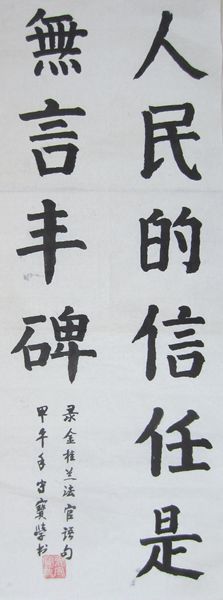 人民的信任是
無言丰碑
录金桂兰法官语句
甲午年守寶學书